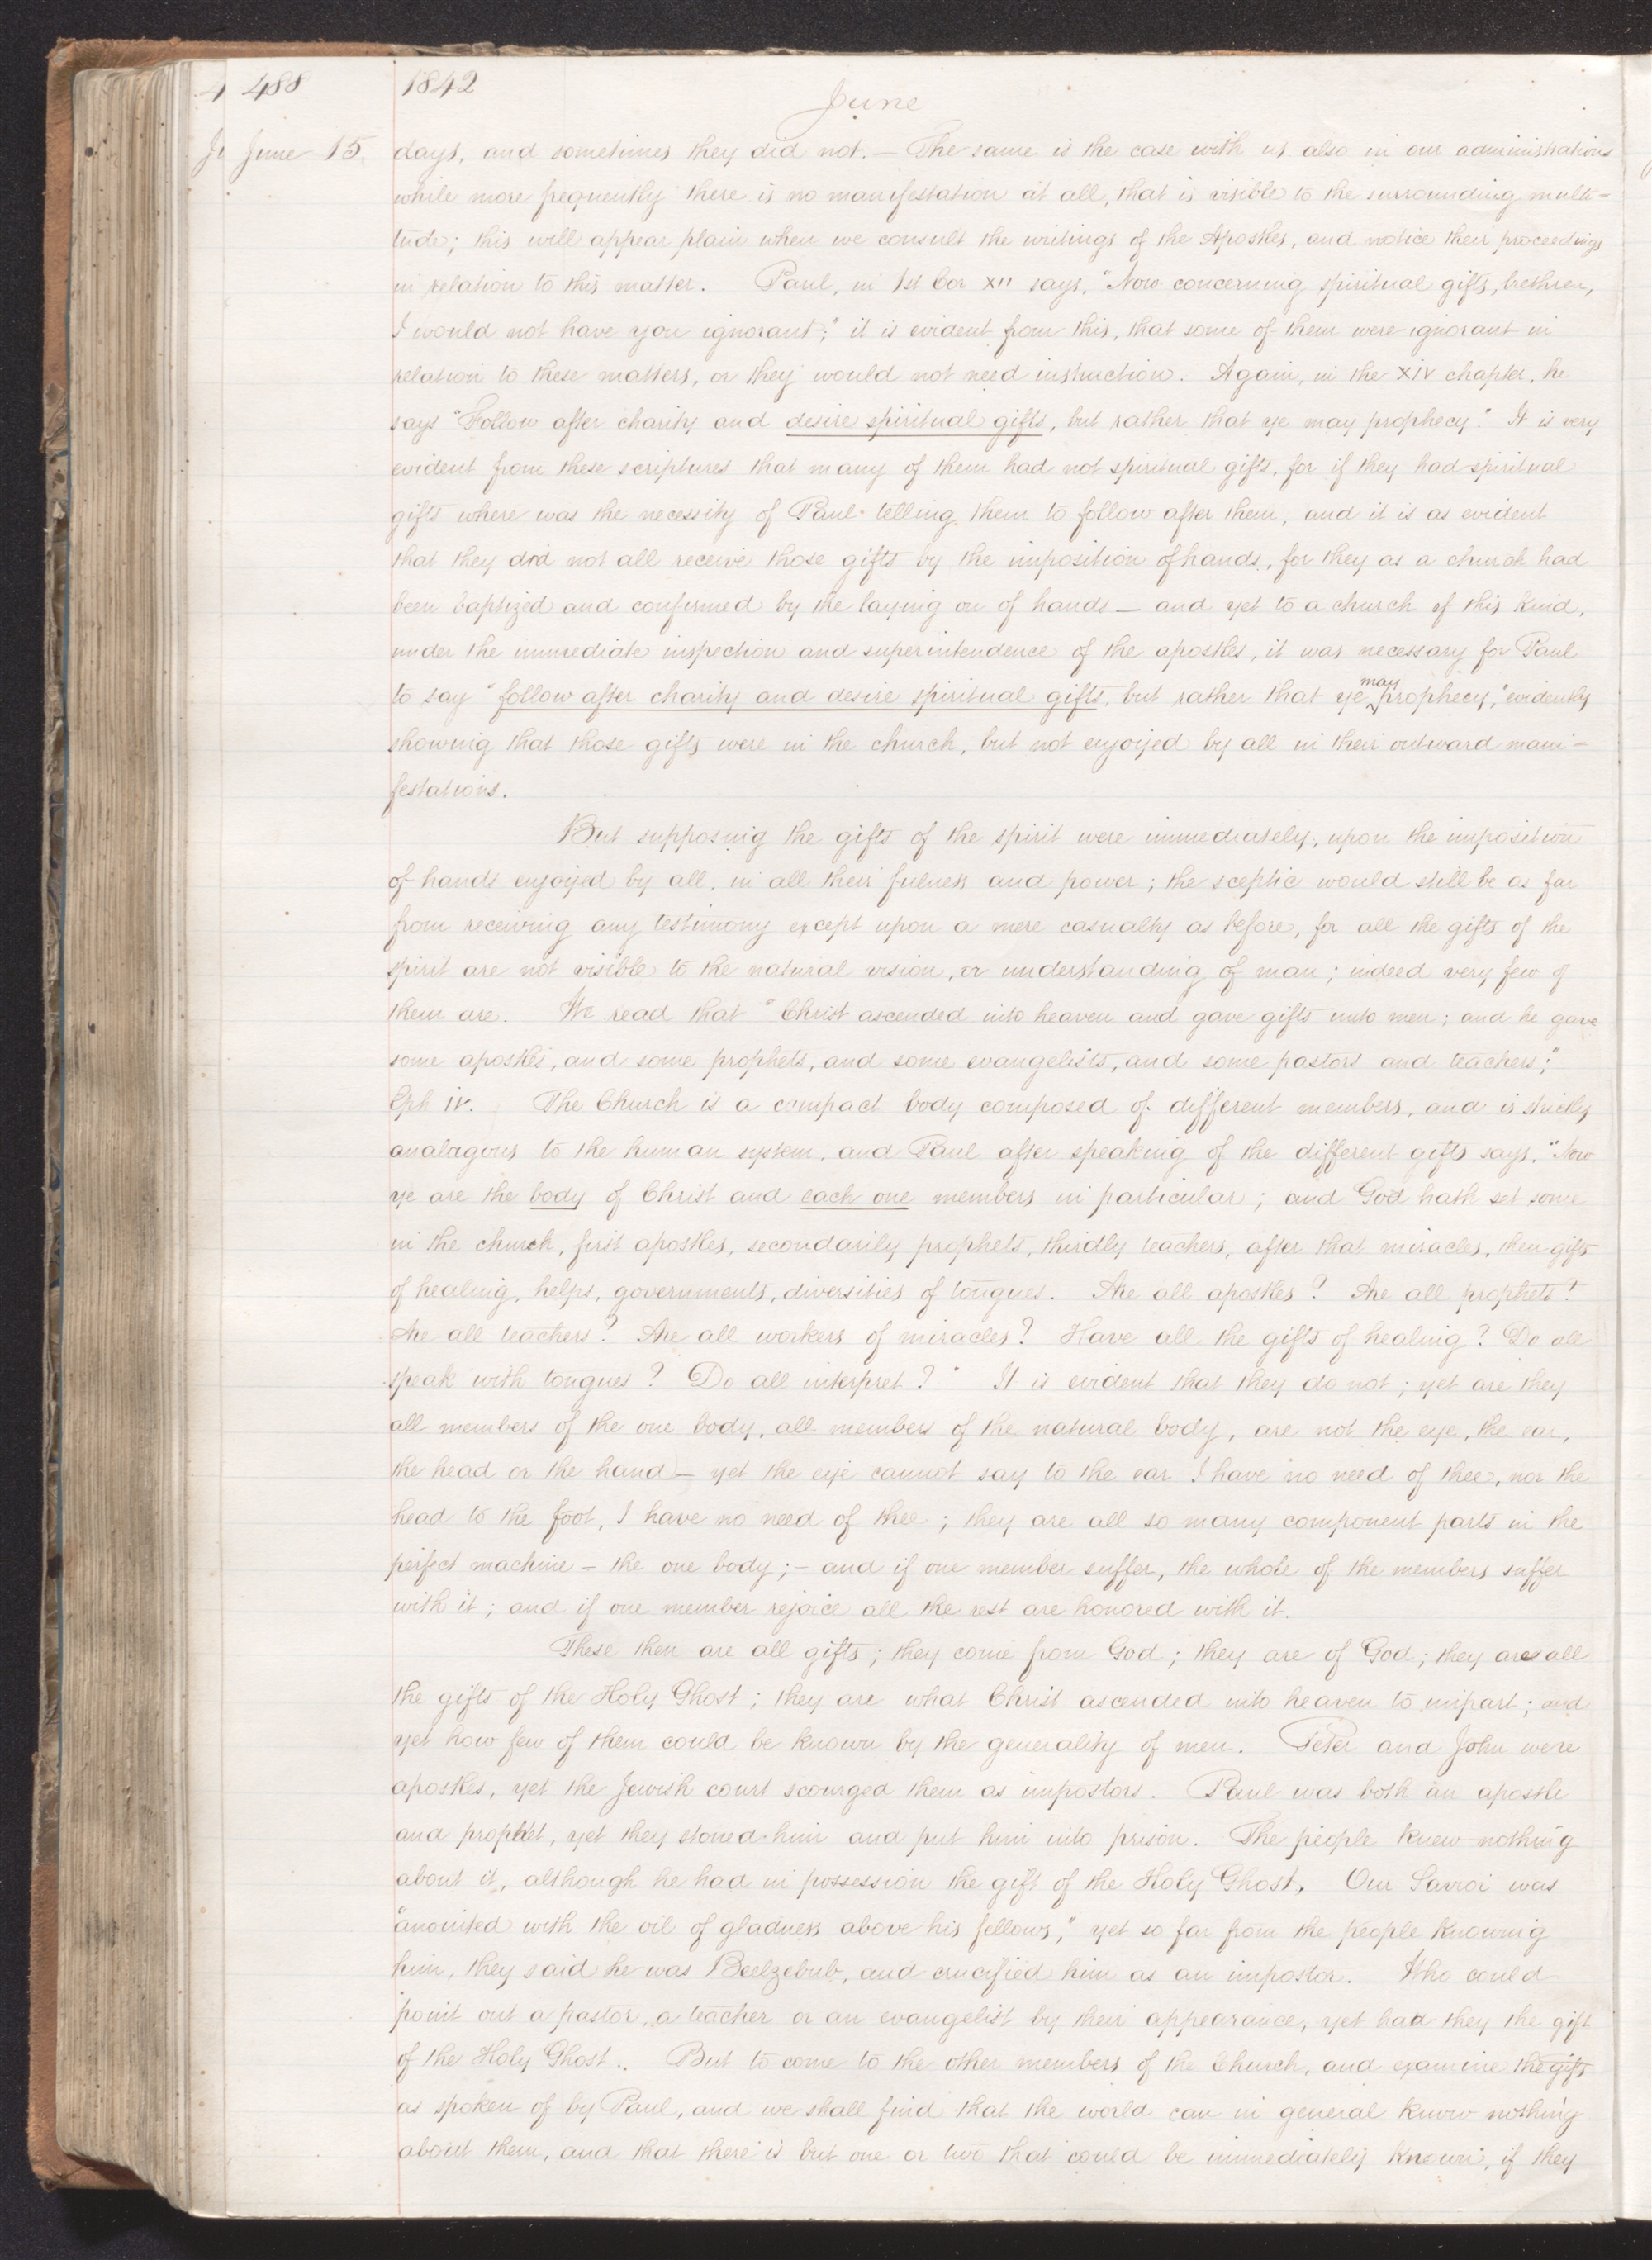 488 1842
June
June 15. days, and sometimes they did not.— The same is the case with us also in our administrations
while more frequently there is no manifestation at all, that is visible to the surrounding multi-
tude; this will appear plain when we consult the writings of the Apostles, and notice their proceedings
in relation to this matter. Paul, in 1st Cor XII says, "Now concerning spiritual gifts, brethren,
I would not have you ignorant;" it is evident from this, that some of them were ignorant in
relation to these matters, or they would not need instruction. Again, in the XIV chapter, he
says "Follow after charity and desire spiritual gifts, but rather that ye may prophecy." It is very
evident from these scriptures that many of them had not spiritual gifts, for if they had spiritual
gifts where was the necessity of Paul telling them to follow after them, and it is as evident
that they did not all receive those gifts by the imposition of hands, for they as a church had
been baptized and confirmed by the laying on of hands — and yet to a church of this kind,
under the immediate inspection and superintendence of the apostles, it was necessary for Paul
to say "follow after charity and desire spiritual gifts, but rather that ye may prophecy," evidently
showing that those gifts were in the church, but not enjoyed by all in their outward mani-
festations.
But supposing the gifts of the spirit were immediately, upon the imposition
of hands enjoyed by all, in all their fulness and power; the sceptic would still be as far
from receiving any testimony except upon a mere casualty as before, for all the gifts of the
spirit are not visible to the natural vision, or understanding of man; indeed very few of
them are. We read that "Christ ascended into heaven and gave gifts unto men; and he gave
some apostles, and some prophets, and some evangelists, and some pastors and teachers;"
Eph IV. The Church is a compact body composed of different members, and is strictly
analagous to the human system, and Paul after speaking of the different gifts says, "Now
ye are the body of Christ and each one members in particular; and God hath set some
in the church, first apostles, secondarily prophets, thirdly teachers, after that miracles, then gifts
of healing, helps, governments, diversities of tongues. Are all apostles? Are all prophets?
Are all teachers? Are all workers of miracles? Have all the gifts of healing? Do all
speak with tongues? Do all interpret?" It is evident that they do not; yet are they
all members of the one body, all members of the natural body, are not the eye, the ear,
the head or the hand — yet the eye cannot say to the ear I have no need of thee, nor the
head to the foot, I have no need of thee; they are all so many component parts in the
perfect machine – the one body; – and if one member suffer, the whole of the members suffer
with it; and if one member rejoice all the rest are honored with it.
These then are all gifts; they come from God; they are of God; they are all
the gifts of the Holy Ghost; they are what Christ ascended into heaven to impart; and
yet how few of them could be known by the generality of men. Peter and John were
apostles, yet the Jewish court scourged them as impostors. Paul was both an apostle
and prophet, yet they stoned him and put him into prison. The people knew nothing
about it, although he had in possession the gift of the Holy Ghost. Our Savior was
"anointed with the oil of gladness above his fellows," yet so far from the people knowing
him, they said he was Beelzebub, and crucified him as an impostor. Who could
point out a pastor, a teacher or an evangelist by their appearance, yet had they the gift
of the Holy Ghost.. But to come to the other members of the Church, and examine the gifts
as spoken of by Paul, and we shall find that the world can in general know nothing
about them, and that there is but one or two that could be immediately known, if they